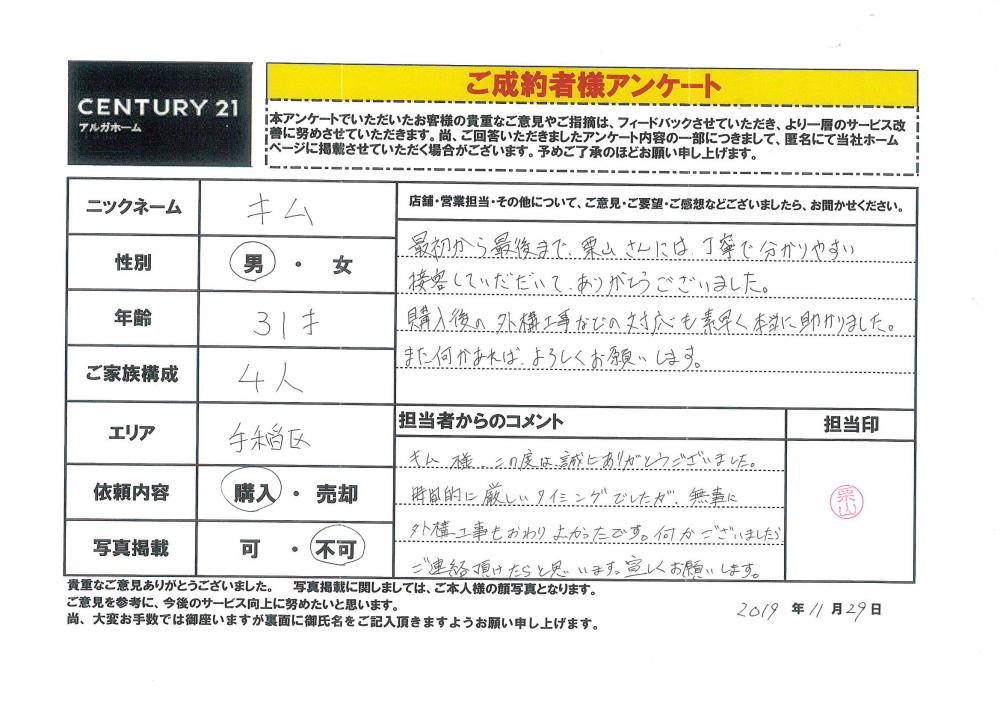 CENTURY 21
アルガホーム
ご成約者様アンケート
本アンケートでいただいたお客様の貴重なご意見やご指摘は、フィードバックさせていただき、より一層のサービス改
善に努めさせていただきます。尚、ご回答いただきましたアンケート内容の一部につきまして、匿名にて当社ホーム
ページに掲載させていただく場合がございます。予めご了承のほどお願い申し上げます。
ニックネーム キム
性別 男 ・ 女
年齢 31才
ご家族構成 4人
エリア 手稲区
依頼内容 購入 ・ 売却
写真掲載 可 ・ 不可
店舗・営業担当・その他について、ご意見・ご要望・ご感想などございましたら、お聞かせください。
最初から最後まで、栗山さんには、丁寧で分かりやすい
接客していだだいて、ありがとうございました。
購入後の外構工事などの対応も素早く本当に助かりました。
また何かあれば、よろしくお願いします。
担当者からのコメント
担当印
キム様、この度は誠にありがとうございました。
時間的に厳しいタイミングでしたが、無事に
外構工事もおわりよかったです。何かございましたら
ご連絡頂けたらと思います。宜しくお願いします。
栗山
貴重なご意見ありがとうございました。 写真掲載に関しましては、ご本人様の顔写真となります。
ご意見を参考に、今後のサービス向上に努めたいと思います。
尚、大変お手数では御座いますが裏面に御氏名をご記入頂きますようお願い申し上げます。
2019 年 11 月 29 日